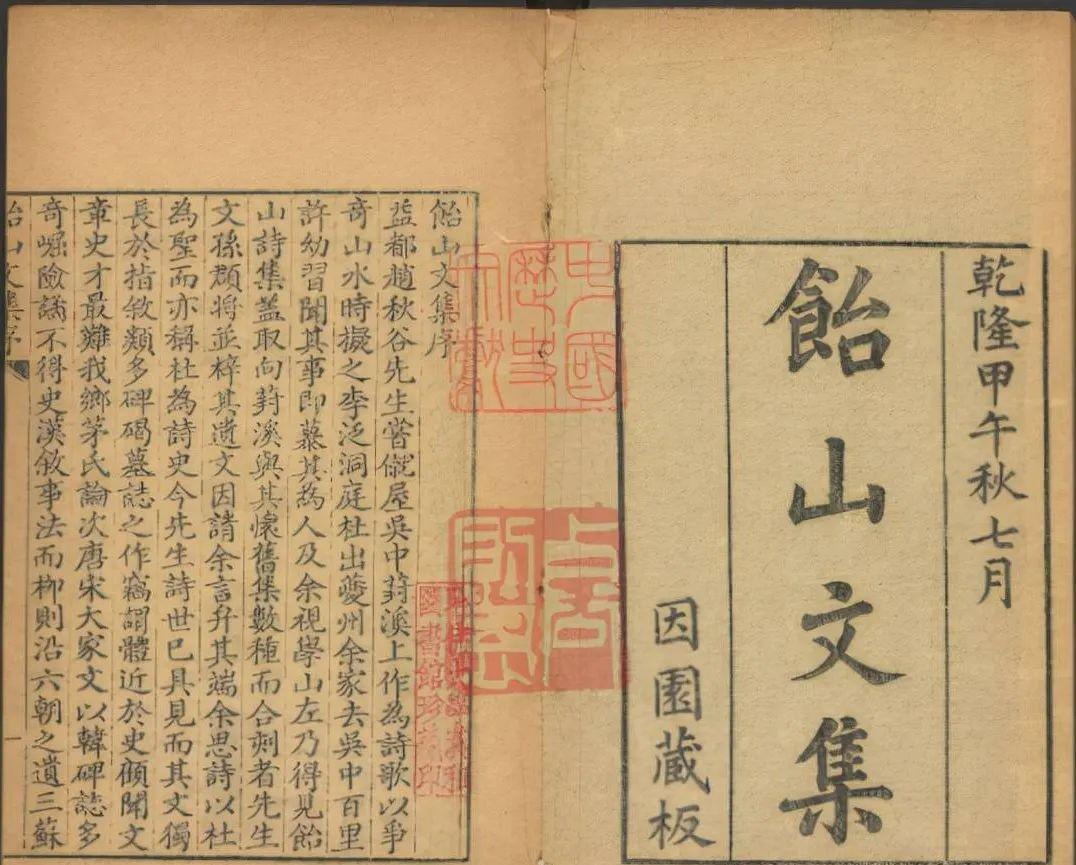 乾隆甲午秋七月
飴山文集
因園藏板
飴山文集序
益都趙秋谷先生嘗僦屋吳中葑溪上作為詩歌以寄
奇山水時擬之李泛洞庭杜出夔州余家去吳中百里
許幼習聞其事即慕其為人及余視學山左乃得見飴
山詩集盖取向葑溪與其懷舊集數種而合刻者先生
文孫頵將並梓其遺文因請余言弁其端余思詩以杜
為聖而亦稱杜為詩史今先生詩世已具見而其文獨
長於指敘類多碑碣墓誌之作竊謂體近於史頋聞文
章史才最難我鄉茅氏論次唐宋大家文以韓碑誌多
奇崛險譎不得史漢敘事法而柳則沿六朝之遺三蘇
飴山文集序
一